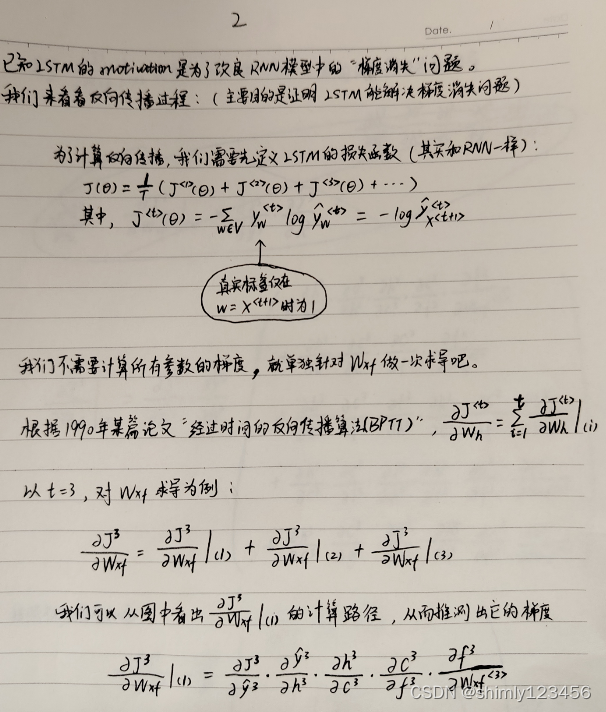 2
Date. /
已知LSTM的motivation是为了改良RNN模型中的"梯度消失"问题。
我们来看看反向传播过程：(主要目的是证明LSTM能解决梯度消失问题)
为了计算反向传播，我们需要先定义LSTM的损失函数 (其实和RNN一样)：
J(θ) = 1/T (J^<1>(θ) + J^<2>(θ) + J^<3>(θ) + ⋯)
其中，J^<t>(θ) = -∑_{w∈V} y_w^<t> log ŷ_w^<t> = -log ŷ_{x^<t+1>}^<t>
真实标签仅在
w = x^<t+1> 时为1
我们不需要计算所有参数的梯度，就单独针对Wxf做一次求导吧。
根据1990年某篇论文"经过时间的反向传播算法(BPTT)"，∂J^<t>/∂Wh = ∑_{i=1}^{t} ∂J^<t>/∂Wh |(i)
以t=3，对Wxf求导为例：
∂J³/∂Wxf = ∂J³/∂Wxf |(1) + ∂J³/∂Wxf |(2) + ∂J³/∂Wxf |(3)
我们可以从图中看出 ∂J³/∂Wxf |(1) 的计算路径，从而推测出它的梯度
∂J³/∂Wxf |(1) = ∂J³/∂ŷ³ · ∂ŷ³/∂h³ · ∂h³/∂c³ · ∂c³/∂f³ · ∂f³/∂Wxf^<3>
CSDN @shimly123456